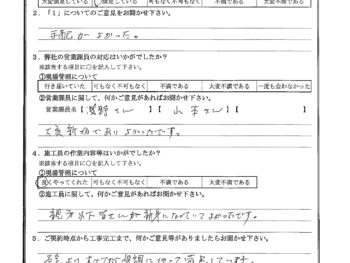 大変満足している 満足している 可も不可もなく 不満である 大変不満である
2．「1」についてのご意見をお聞かせ下さい。
手配がよかった。
3．弊社の営業課員の対応はいかがでしたか？
※該当する項目に〇を記入して下さい。
①現場管理について
行き届いていた 可もなく不可もなく 不満である 大変不満である 一度も会わなかった
②営業課員に関して、何かご意見があればお聞かせ下さい。
営業課員名【 さん 】【 山本さん 】【
大変 でありよかったです。
4．施工員の作業内容等はいかがでしたか？
※該当する項目に〇を記入して下さい。
①現場管理について
良くやってくれた 可もなく不可もなく 不満である 大変不満である
②施工員に関して、何かご意見があればお聞かせ下さい。
親方以下皆さんが親身になっていてよかったです。
5．ご契約時点から工事完工まで、何かご意見等がありましたらお聞かせ下さい。